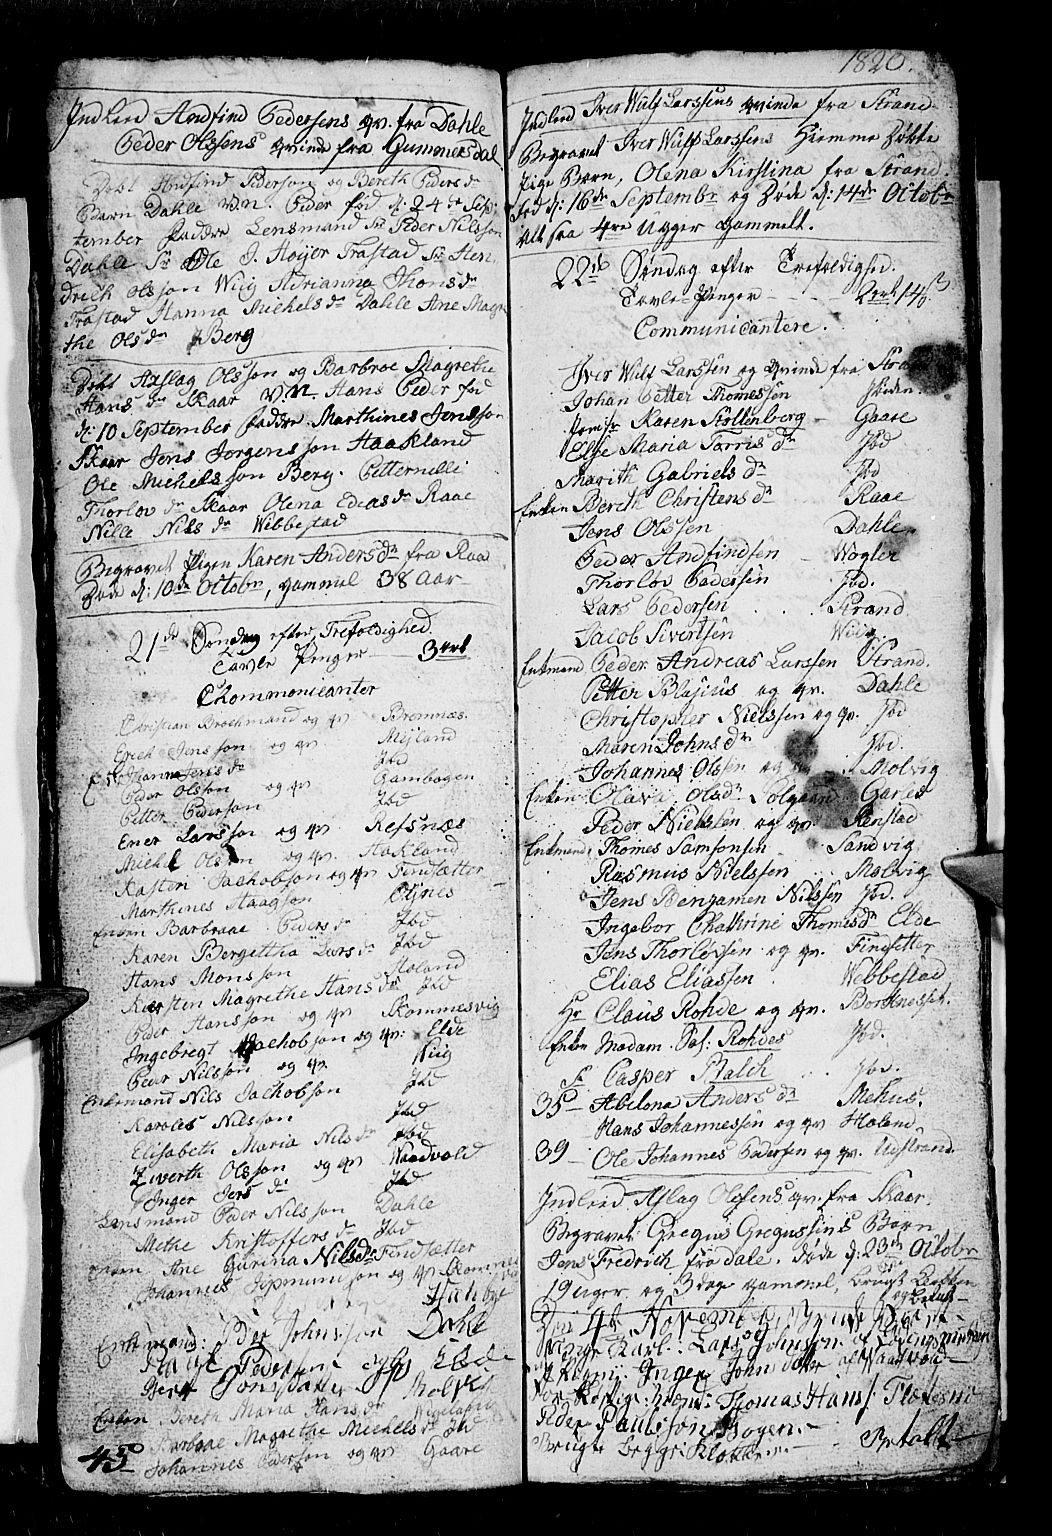 Indled Andfind Pedersens qv. fra Dahle
Peder Olssens qvinde fra Gummersdal
Døbt Andfind Pederson og Bereth Peders dr
Barn Dahle v.n. Peder fød d: 24de Sep
tember Faddre Lensmand Sr Peder Nilsson
Dahle Sr Ole J. Høyer Trastad Sr Hen
drich Olsson Wiig Adrianna Thoms dr
Trastad Hanna Michels dr Dahle Ane Magre
the Ols dr Berg
Døbt Asslag Olsson og Barbroe Magrethe
Hans dr Skaar v.n. Hans Peder fød
d: 10 September Faddre Marthines Jensson
Skaar Jens Jorgensson Haakland
Ole Michelsson Berg. Petternelli
Thorlov dr Skaar Olena Edias dr Raae
Nille Nils dr Wibbestad
Begravet Pigen Karen Anders dr fra Raa
Døde d: 10de Octobr, gammel 38 Aar
21de Søndag efter Trefoldighed.
Tavle Penger 3 ort
Chommonicanter
Christian Brochmand og qv Bromnæs.
Erich Jensson og qv Mejland
Johanna Jens dr Ibd
Peder Olsson og qv Gambogen
Petter Pederson Ibd
Ener Larsson og qv Refsnæs
Michel Olsen og qv. Aakland
Kasten Jachobson og qv Findsætter
Marthines Haagson Olsnes
Enken Barbraae Peders dr Ibd
Karen Bergettha Lars dr Ibd
Hans Monsson Holand
Kiersten Magrethe Hans dr Ibd
Peder Hansson og qv Skommesvig
Ingebregt Jachobson og qv: Elde
Peder Nilsson og qv Wiig
Enkemand Nils Jachobson Ibd
Karoles Nilsson Ibd
Elisabeth Maria Nils dr Ibd
Ziverth Olsson og qv Waadvold
Inger Jers dr Ibd
Lensmand Peder Nilsson Dahle
Methe Kristoffers dr Ibd
Enken Ane Gurina Nils dr Findsætter
Johannes og qv
Enkemand: Peder Johnsson Dahle
Peders Ibd
Berit Jonsdatter Molvik
Enken Bereth Maria Hans dr
Barbroe Magrethe Michels dr Ibd
45 Johannes Pederson og qv Gaare
1820.
Indled Iver Wulf Larssens qvinde fra Strand
Begravet Iver Wulf Larssens Hiemme Døbte
Pige Barn, Olena Kirstina fra Strand.
Fød d: 16de Septembr og Døde d: 14de Octobr
Alt saa 4re Uger gammelt.
22de Søndag efter Trefoldighed.
Tavle-Penger - - - - 2 ort 14 ß
Communicantere.
Iver Wulf Larssen og qvinde fra Strand
Johan Petter Thomessen Skiden.
Jomfr Karen Stoltenberg - Gaare
Else Maria Torris dr Ibd
Marith Gabriels dr Ibd
Enken Bereth Christens dr Raae
Jens Olssen Dahle
Peder Andfindsen Wogler
Thorlov Pedersen Ibd.
Lars Pedersen Strand
Jacob Sivertsen Wiig
Enkemand Peder Andreas Larssen Strand.
Petter Blasius og qv. Dahle
Christopher Nielssen og qv. Ibd
Maren Johns dr Ibd.
Johannes Olssen og qv Molvig
Enken Olava Ols dr Solgaard Gares
Peder Nielssen og qv. Renstad
Enkemand Thomes Samsonsen Sandvig
Rasmus Nielssen Molvig
Jens Benjamen Nilssen Ibd.
Ingebor Chathrine Thomes dr Elde
Jens Thorlovsen og qv. Findsetter
Elias Eliassen Webbestad
Hr Claus Rohde og qv. Borkneset.
Enken Madam Sal: Rohdes Ibd.
Sr Casper Stalch Ibd.
35 - Abelona Anders dr Mehus.
Hans Johannessen og qv Holand.
39 - Ole Johannes Pedersen og qv. Utstrand.
Indled Aslag Olssens qv. fra Skaar.
Begravet Gregus Gregussens Barn
Jens Fredrich fra Dale. Døde d: 23de Octobr
19 uger og 3 dage gammel, brugt
Den 4de November
Karl: Lars
Inger Johnsdatter af Waadvold
Thomas Hans:
Peder Paulsson Bogen.
Brugte Begge Klokker. - Betalt